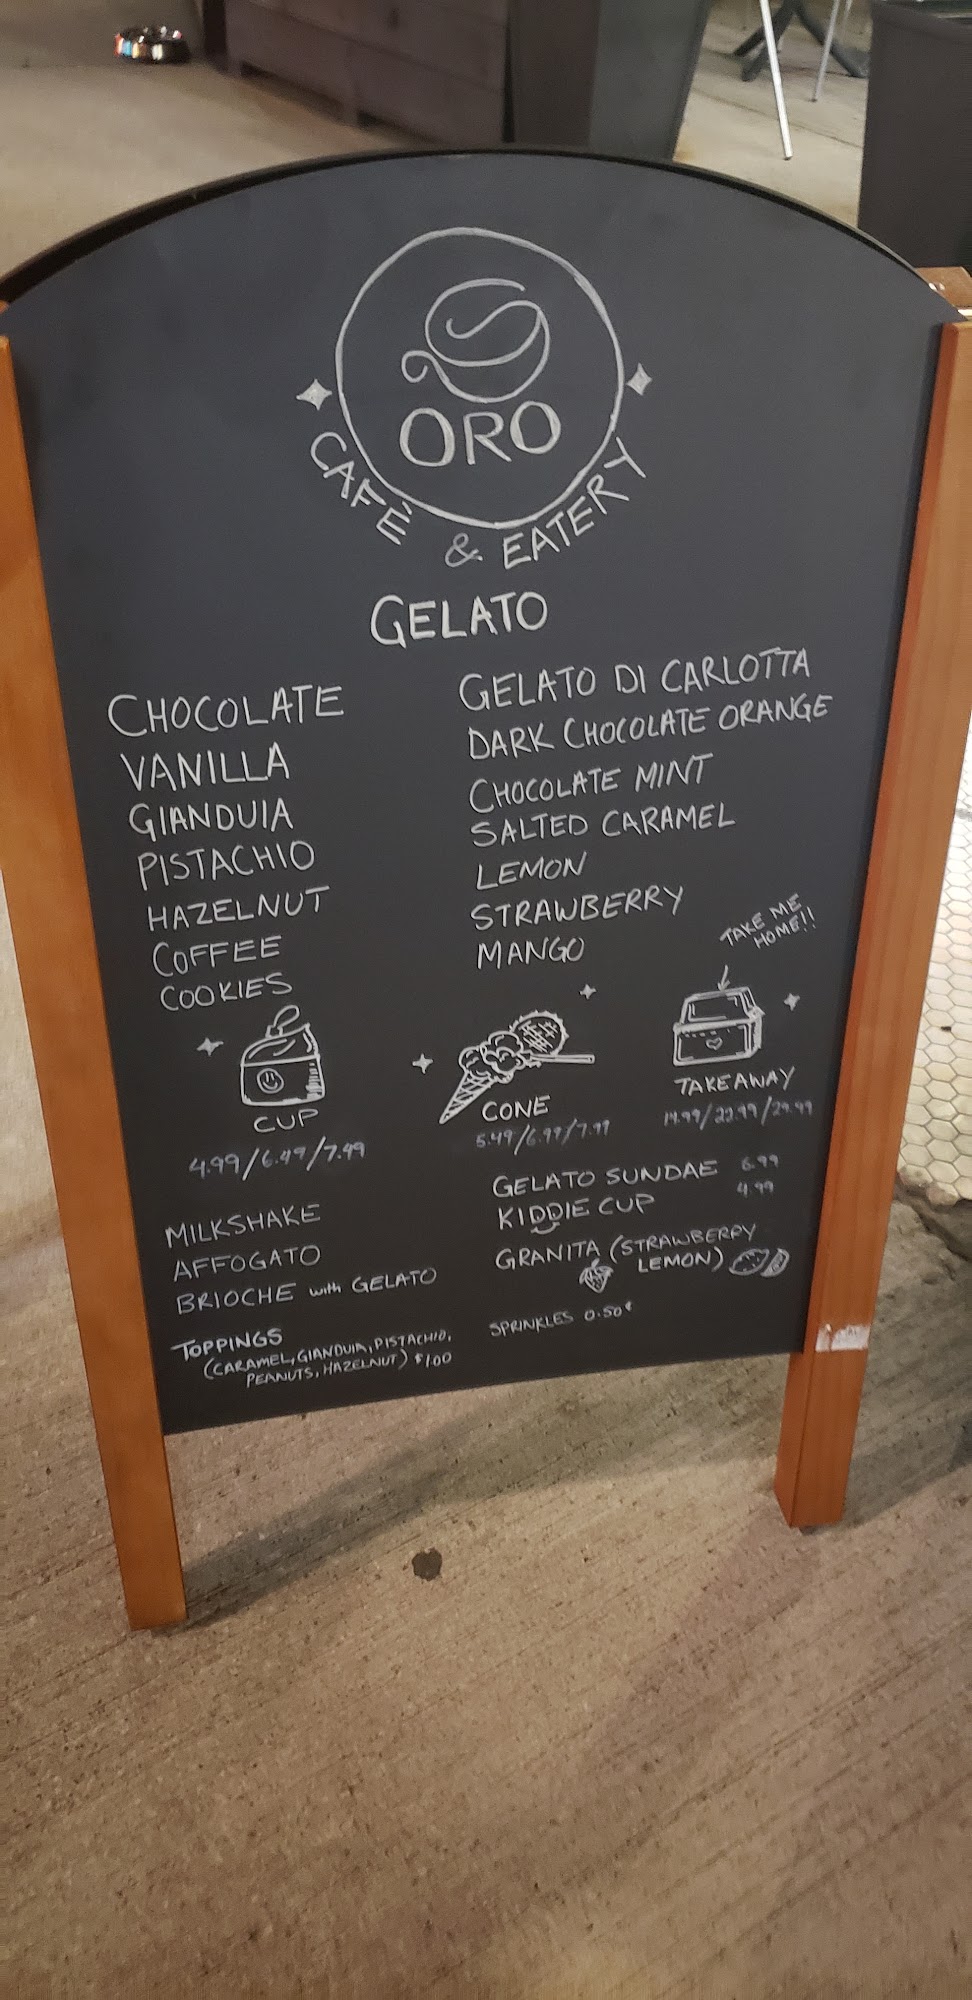 ORO
CAFÈ & EATERY
GELATO
CHOCOLATE
VANILLA
GIANDUIA
PISTACHIO
HAZELNUT
COFFEE
COOKIES
GELATO DI CARLOTTA
DARK CHOCOLATE ORANGE
CHOCOLATE MINT
SALTED CARAMEL
LEMON
STRAWBERRY
MANGO
TAKE ME
HOME!!
CUP
4.99/6.49/7.49
CONE
5.49/6.99/7.99
TAKEAWAY
14.99/22.99/29.99
MILKSHAKE
AFFOGATO
BRIOCHE with GELATO
GELATO SUNDAE 6.99
KIDDIE CUP 4.99
GRANITA (STRAWBERRY
LEMON)
TOPPINGS
(CARAMEL, GIANDUIA, PISTACHIO,
PEANUTS, HAZELNUT) $1.00
SPRINKLES 0.50¢